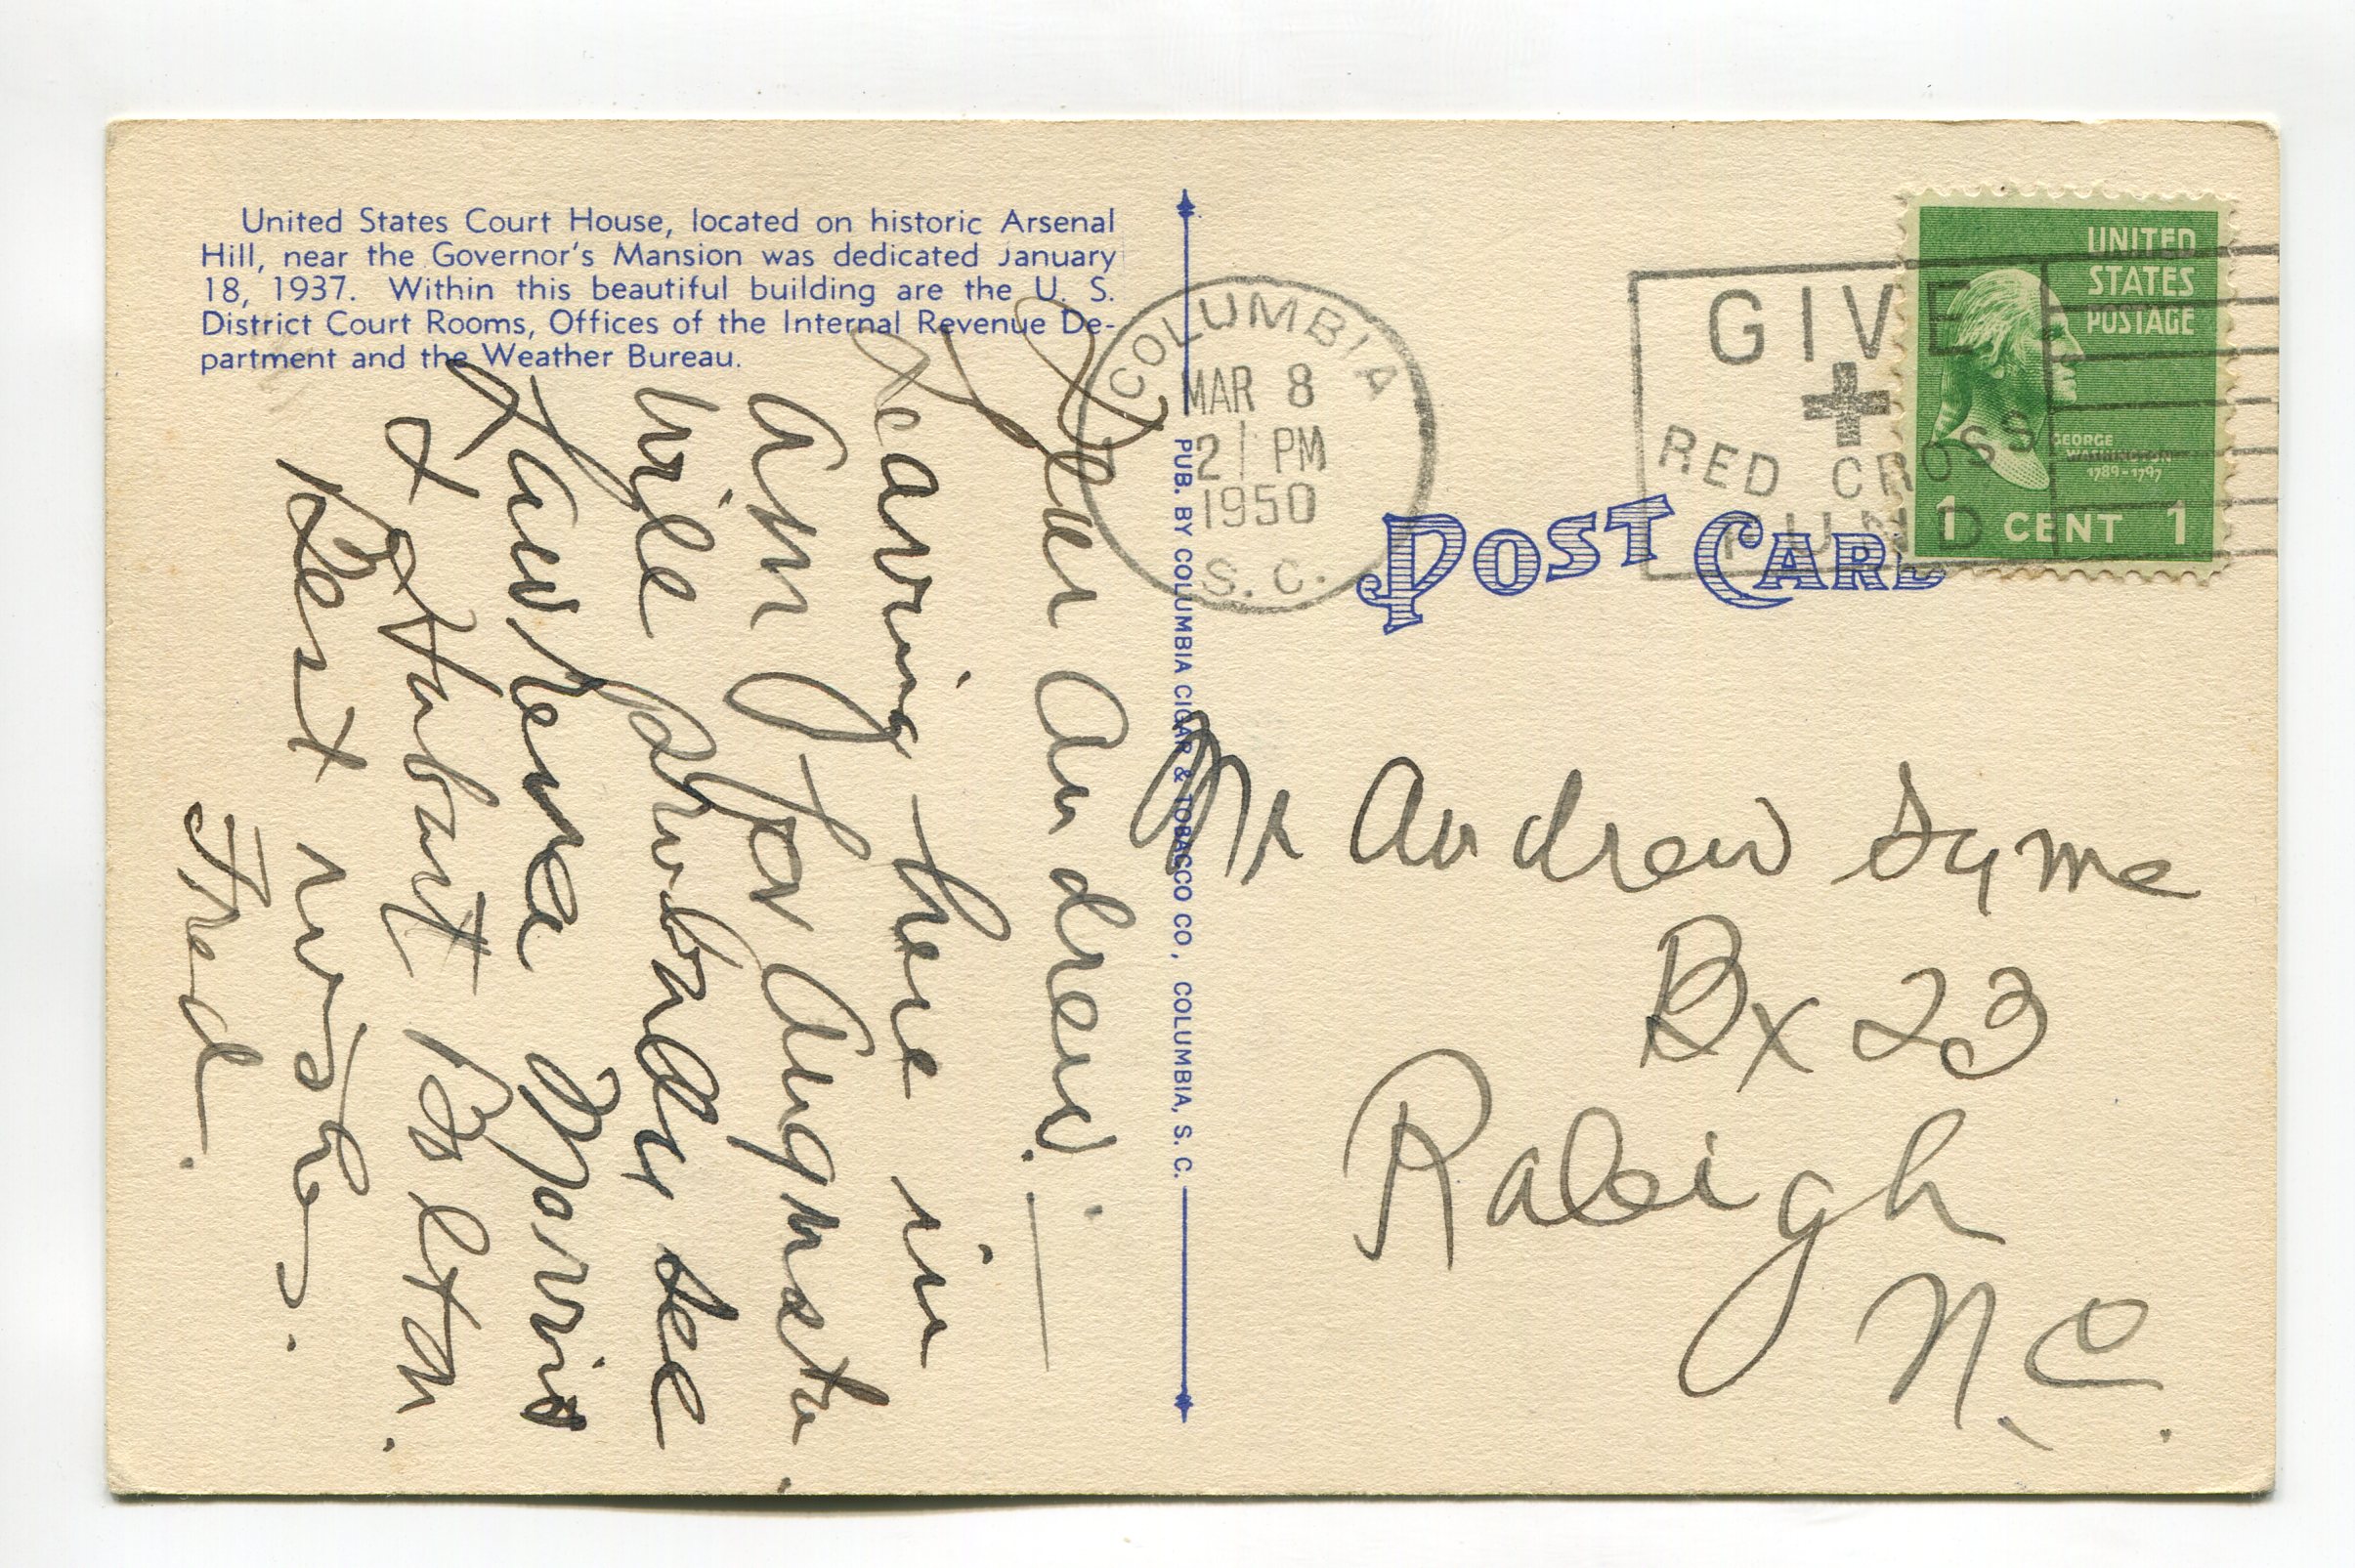 United States Court House, located on historic Arsenal
Hill, near the Governor's Mansion was dedicated January
18, 1937. Within this beautiful building are the U. S.
District Court Rooms, Offices of the Internal Revenue De-
partment and the Weather Bureau.
Dear Andrew.
Leaving here in
am for Augusta.
Will probably see
Lawrence Morris
& Hubart Bolton.
Best
Fred.
PUB. BY COLUMBIA CIGAR & TOBACCO CO., COLUMBIA, S. C.
COLUMBIA
MAR 8
2 PM
1950
S. C.
GIVE
RED CROSS
FUND
UNITED
STATES
POSTAGE
GEORGE
WASHINGTON
1789-1797
1 CENT 1
POST CARD
Mr Andrew Syme
Bx 23
Raleigh
N. C.